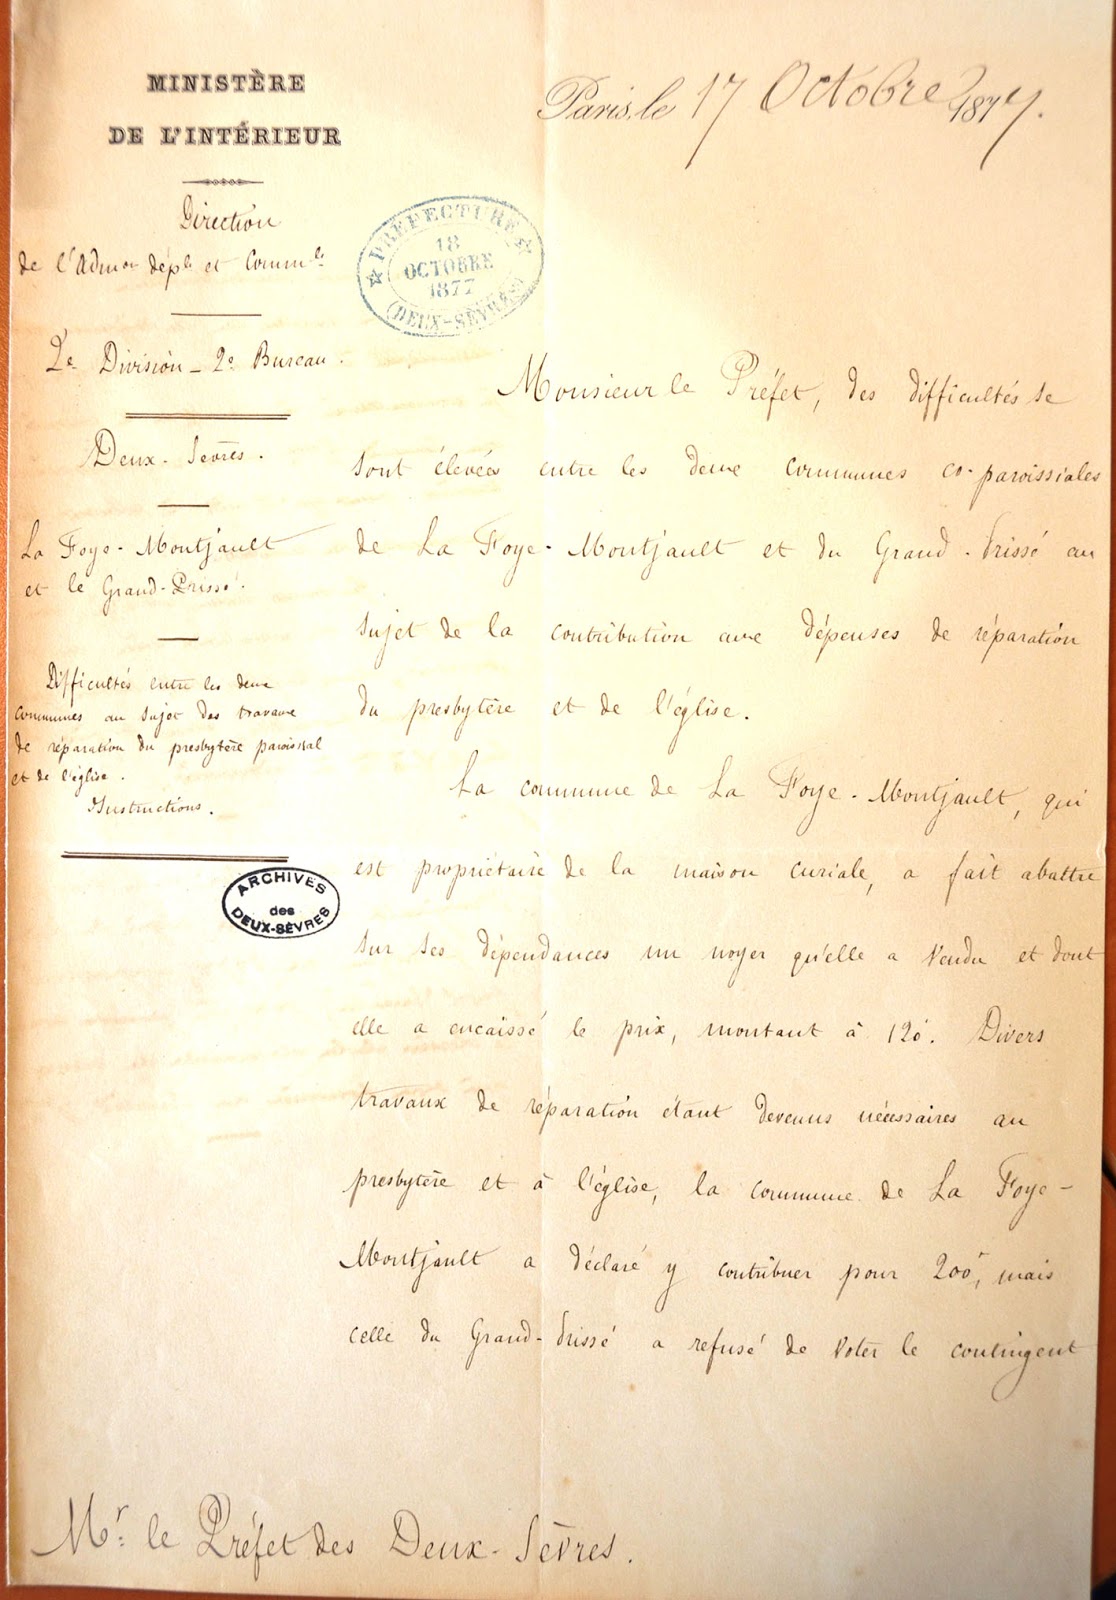 MINISTÈRE
DE L'INTÉRIEUR
Paris, le 17 Octobre 1877.
Direction
de l'Admon déple et Commle
PRÉFECTURE
18
OCTOBRE
1877
(DEUX-SÈVRES)
2e Division - 2e Bureau.
Deux-Sèvres.
La Foye-Montjault
et le Grand-Prissé.
Difficultés entre les deux
communes au sujet des travaux
de réparation du presbytère paroissial
et de l'église.
Instructions.
ARCHIVES
des
DEUX-SÈVRES
Monsieur le Préfet, des difficultés se
sont élevées entre les deux communes co-paroissiales
de La Foye-Montjault et du Grand-Prissé au
sujet de la contribution aux dépenses de réparation
du presbytère et de l'église.
La commune de La Foye-Montjault, qui
est propriétaire de la maison curiale, a fait abattre
sur ses dépendances un noyer qu'elle a vendu et dont
elle a encaissé le prix, montant à 120f. Divers
travaux de réparation étant devenus nécessaires au
presbytère et à l'église, la commune de La Foye-
Montjault a déclaré y contribuer pour 200f, mais
celle du Grand-Prissé a refusé de voter le contingent
Mr. le Préfet des Deux-Sèvres.